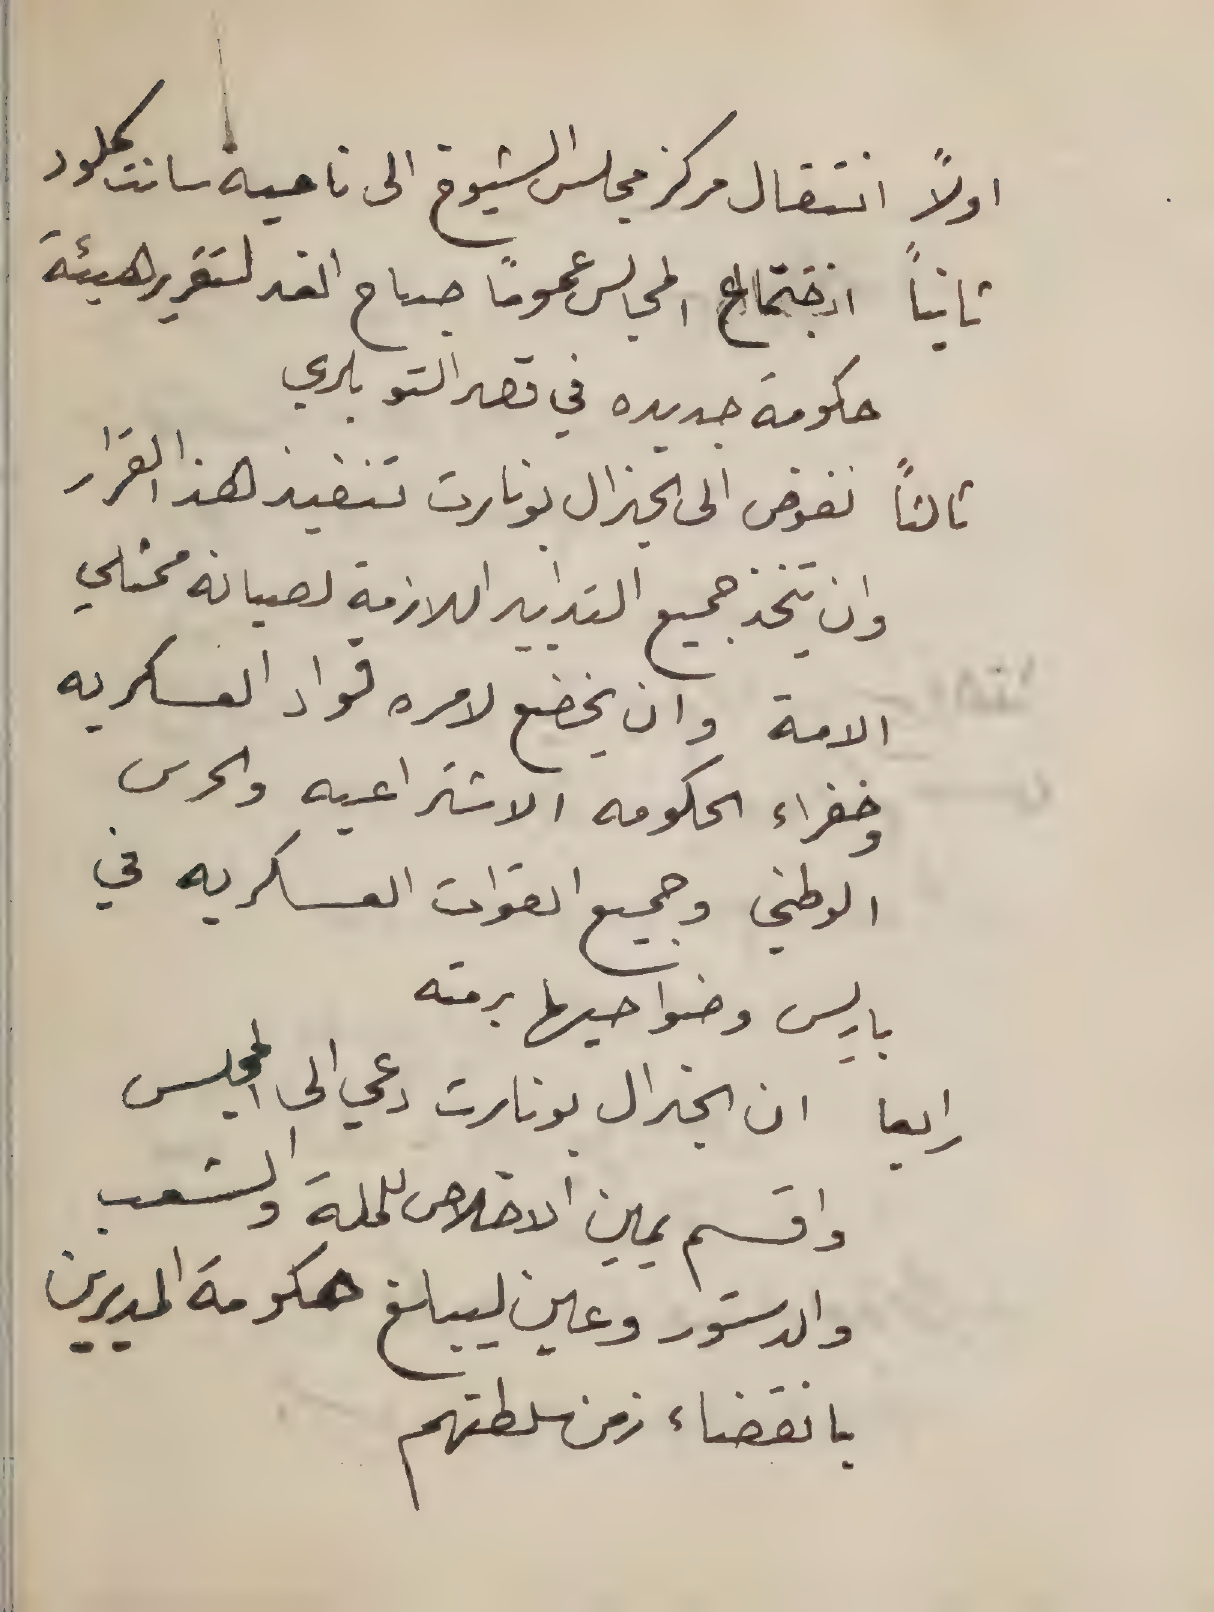 اولاً انتقال مركز مجلس الشيوخ الى ناحية سانت كلود
ثانياً اجتماع المجالس عموماً صباح الغد لتقرير هيئة
حكومة جديده في قصر التويلري
ثالثاً نفوض الى الجنرال بونابرت تنفيذ هذا القرار
وان يتخذ جميع التدابير اللازمة لصيانة ممثلي
الامة وان يخضع لامره قواد العسكريه
وخفراء الحكومه الاشتراعيه والحرس
الوطني وجميع القوات العسكريه في
باريس وضواحيها برمته
رابعا ان الجنرال بونابرت دعي الى المجلس
واقسم يمين الاخلاص للملة والشعب
والدستور وعين ليبلغ حكومة المديرين
بانقضاء زمن سلطتهم